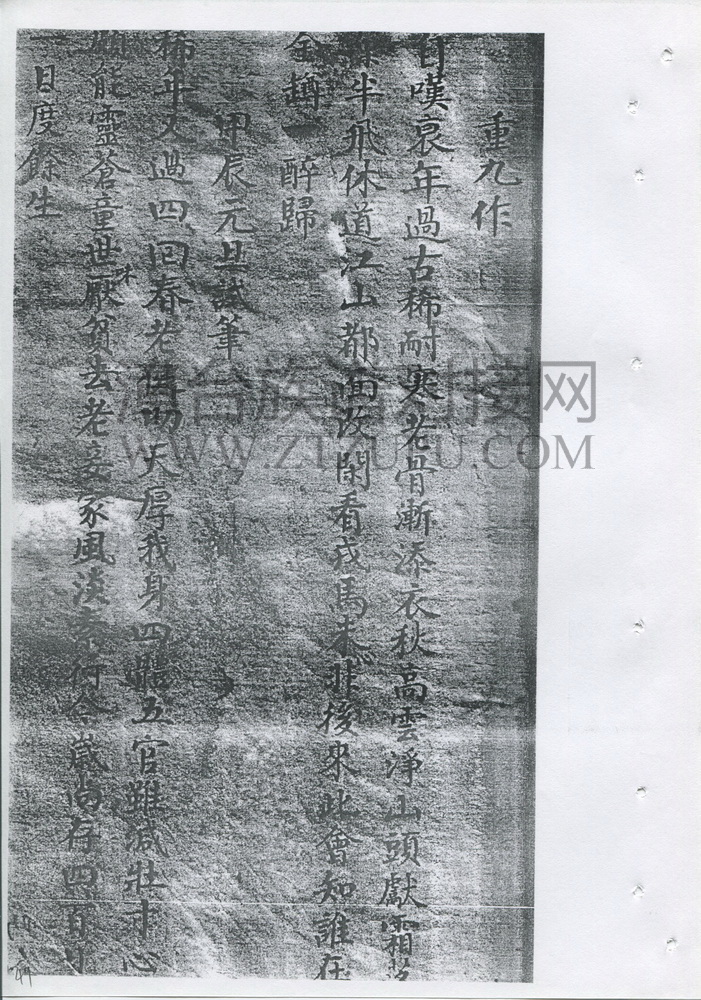 重九作
自嘆衰年過古稀耐寒老骨漸添衣秋高雲淨山頭獻霜
半飛休道江山都面改閑看戎馬未非後來此會知誰在
金樽一醉歸
甲辰元旦試筆
稀年又過四回春老天厚我身四體五官雖減壯寸心
能靈蒼童世厭貧去老妾家風淡今歲尚存四百
才
一日度餘生
台族譜對接網
WWW.ZTZUPU.COM